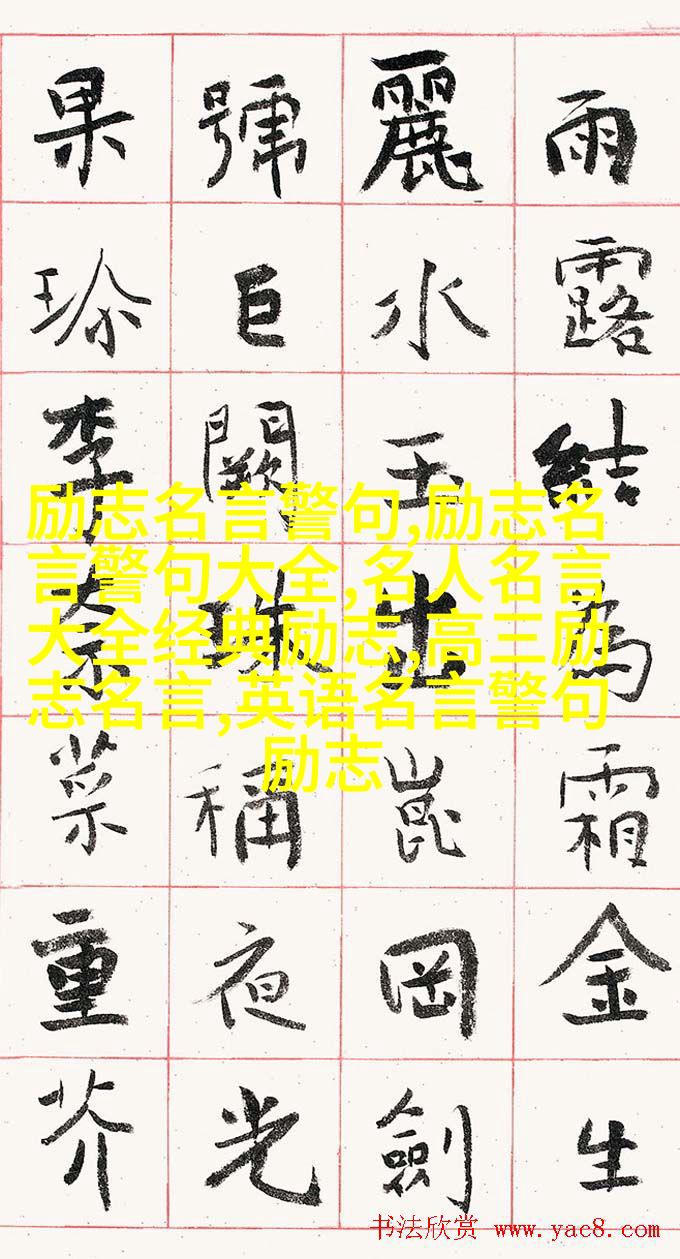 雨露結為霜金生
麗水玉出崑岡劍
號巨闕珠稱夜光
果珍李柰菜重芥
励志名言警句,励志名
言警句大全,名人名言
大全经典励志,高三励
志名言,英语名言警句
励志
书法欣赏 www.yac8.com